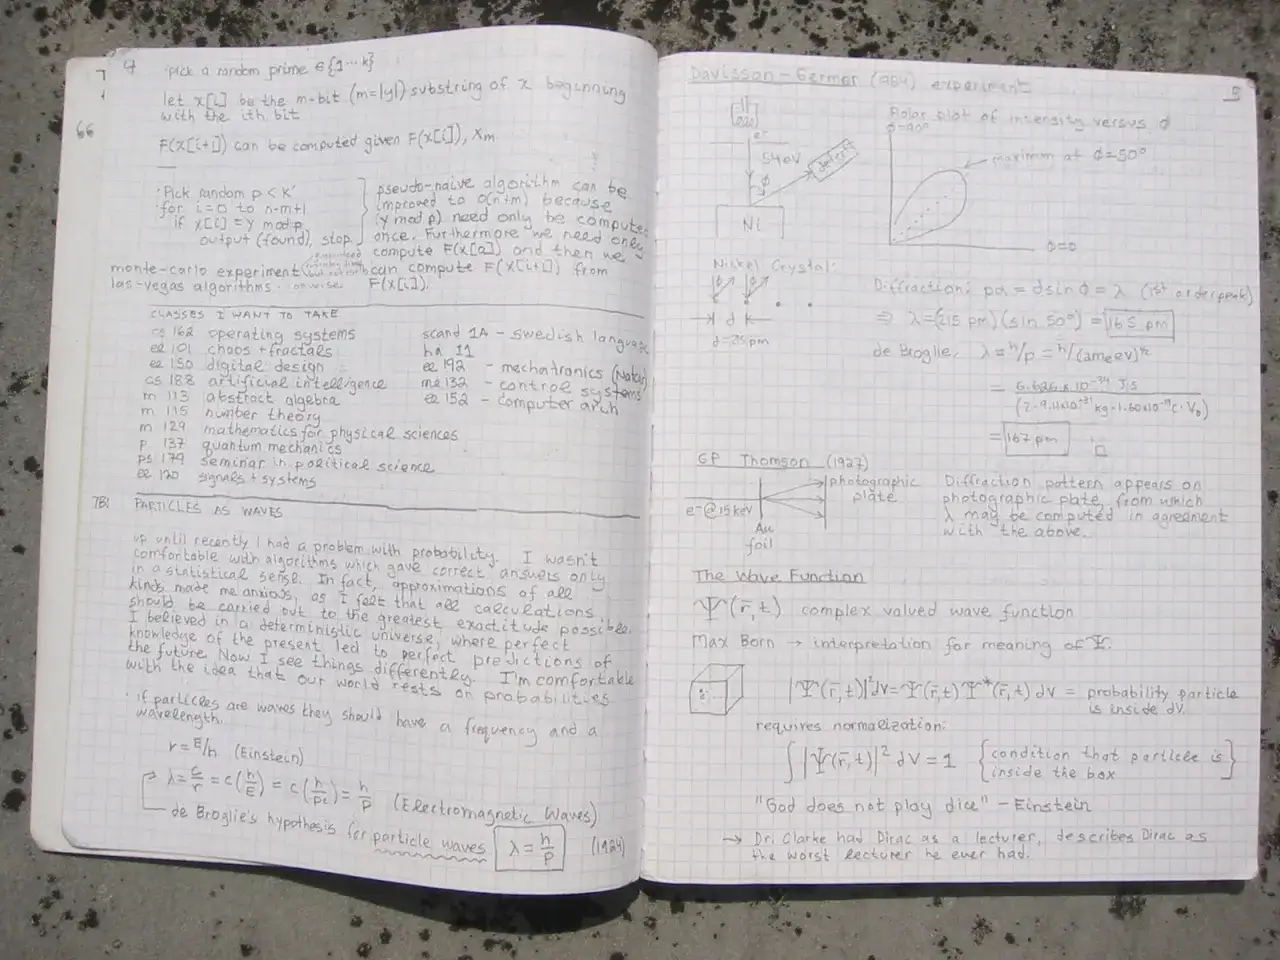 4
pick a random prime ∈ {1...k}
let x[i] be the m-bit (m=|y|) substring of x beginning
with the ith bit
66
F(x[i+1]) can be computed given F(x[i]), xm
'Pick random p < k'
for i=0 to n-m+1
if x[i] = y mod p
output (found), stop.
pseudo-naive algorithm can be
improved to O(n+m) because
(y mod p) need only be computed
once. Furthermore we need only
compute F(x[0]) and then we
can compute F(x[i+1]) from
F(x[i]).
monte-carlo experiment
las-vegas algorithms.
CLASSES I WANT TO TAKE
cs 162 operating systems
ee 101 chaos + fractals
ee 150 digital design
cs 188 artificial intelligence
m 113 abstract algebra
m 115 number theory
m 129 mathematics for physical sciences
p 137 quantum mechanics
ps 179 seminar in political science
ee 120 signals + systems
scand 1A - swedish language
ha 11
ee 192 - mechatronics
me 132 - control systems
ee 152 - computer arch
7B:
PARTICLES AS WAVES
up until recently I had a problem with probability. I wasn't
comfortable with algorithms which gave correct answers only
in a statistical sense. In fact, approximations of all
kinds made me anxious, as I felt that all calculations
should be carried out to the greatest exactitude possible.
I believed in a deterministic universe, where perfect
knowledge of the present led to perfect predictions of
the future. Now I see things differently. I'm comfortable
with the idea that our world rests on probabilities
· if particles are waves they should have a frequency and a
wavelength.
r = E/h (Einstein)
λ = c/r = c(h/E) = c(h/pc) = h/p (Electromagnetic Waves)
de Broglie's hypothesis for particle waves λ = h/p (1924)
5
Davisson-Germer (1954) experiment
e-
54eV
φ
Ni
Polar plot of intensity versus φ
φ=90°
maximum at φ=50°
φ=0
Nickel Crystal:
d
d=215 pm
Diffraction: pd = d sin φ = λ (1st order peak)
⇒ λ=(215 pm)(sin 50°) = 165 pm
de Broglie, λ = h/p = h/(2meeV)^½
= 6.626 × 10^-34 J·s
(2·9.11×10^-31 kg·1.60×10^-19 C·V0)
= 167 pm
GP Thomson (1927)
e- @ 15 keV
Au
foil
photographic
plate
Diffraction pattern appears on
photographic plate, from which
λ may be computed in agreement
with the above.
The Wave Function
Ψ(r̄,t) complex valued wave function
Max Born → interpretation for meaning of Ψ.
e-
|Ψ(r̄,t)|²dV = Ψ(r̄,t) Ψ*(r̄,t) dV = probability particle
is inside dV.
requires normalization:
∫ |Ψ(r̄,t)|² dV = 1 {condition that particle is
inside the box}
"God does not play dice" - Einstein
→ Dr. Clarke had Dirac as a lecturer, describes Dirac as
the worst lecturer he ever had.